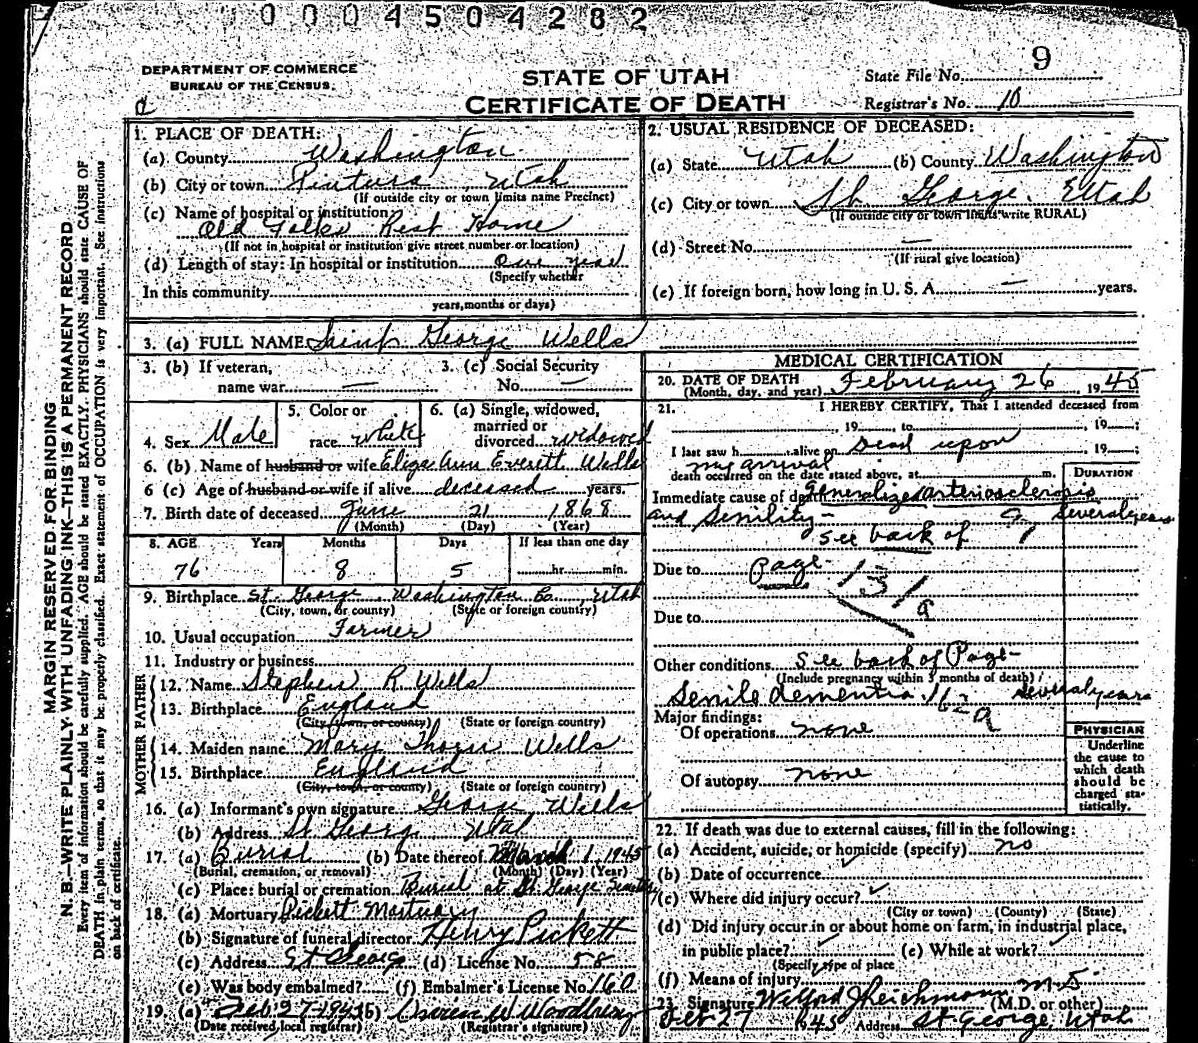 0004504282
9
DEPARTMENT OF COMMERCE
BUREAU OF THE CENSUS
STATE OF UTAH
CERTIFICATE OF DEATH
State File No. 9
Registrar's No. 10
MARGIN RESERVED FOR BINDING
N. B.—WRITE PLAINLY WITH UNFADING INK—THIS IS A PERMANENT RECORD
Every item of information should be carefully supplied. AGE should be stated EXACTLY. PHYSICIANS should state CAUSE OF
DEATH in plain terms, so that it may be properly classified. Exact statement of OCCUPATION is very important. See instructions
on back of certificate.
1. PLACE OF DEATH:
(a) County Washington
(b) City or town Pintura, Utah
(If outside city or town limits name Precinct)
(c) Name of hospital or institution:
Old Folks Rest Home
(If not in hospital or institution give street number or location)
(d) Length of stay: In hospital or institution one year
(Specify whether
In this community
years, months or days)
2. USUAL RESIDENCE OF DECEASED:
(a) State Utah (b) County Washington
(c) City or town St. George. Utah
(If outside city or town limits write RURAL)
(d) Street No. —
(If rural give location)
(e) If foreign born, how long in U. S. A. — years.
3. (a) FULL NAME Saint George Wells
3. (b) If veteran, name war — 3. (c) Social Security No. —
4. Sex Male 5. Color or race white 6. (a) Single, widowed, married or divorced widowed
6. (b) Name of husband or wife Eliza Ann Everett Wells
6 (c) Age of husband or wife if alive deceased years.
7. Birth date of deceased June 21 1868
(Month) (Day) (Year)
8. AGE Years Months Days If less than one day
76 8 5 hr. min.
9. Birthplace St. George Washington Co. Utah
(City, town, or county) (State or foreign country)
10. Usual occupation Farmer
11. Industry or business
FATHER
12. Name Stephen R Wells
13. Birthplace England
(City, town, or county) (State or foreign country)
MOTHER
14. Maiden name Mary Thorn Wells
15. Birthplace England
(City, town, or county) (State or foreign country)
16. (a) Informant's own signature George Wells
(b) Address St George Utah
17. (a) Burial (b) Date thereof March 1, 1945
(Burial, cremation, or removal) (Month) (Day) (Year)
(c) Place: burial or cremation Burial at St George
18. (a) Mortuary Pickett Mortuary
(b) Signature of funeral director Henry Pickett
(c) Address St George (d) License No. 58
(e) Was body embalmed? (f) Embalmer's License No. 160
19. (a) Feb 27-1945 (b)
(Date received local registrar) (Registrar's signature)
MEDICAL CERTIFICATION
20. DATE OF DEATH
(Month, day, and year) February 26, 1945
21. I HEREBY CERTIFY, That I attended deceased from
, 19 , to , 19 ;
I last saw h alive on Dead upon , 19 ;
my arrival
death occurred on the date stated above, at m.
DURATION
Immediate cause of death Generalized arteriosclerosis
and Senility - Several years
See back of
Due to Page- 131a
Due to
Other conditions See back of Page-
(Include pregnancy within 3 months of death)
Senile dementia 162a Several years
Major findings:
Of operations none
Of autopsy none
PHYSICIAN
Underline
the cause to
which death
should be
charged sta-
tistically.
22. If death was due to external causes, fill in the following:
(a) Accident, suicide, or homicide (specify) no
(b) Date of occurrence
(c) Where did injury occur?
(City or town) (County) (State)
(d) Did injury occur in or about home on farm, in industrial place,
in public place? (e) While at work?
(Specify type of place
(f) Means of injury
23. Signature Wilford J Reichmann M.D. (M.D. or other)
Feb 27 1945 Address St. George, Utah